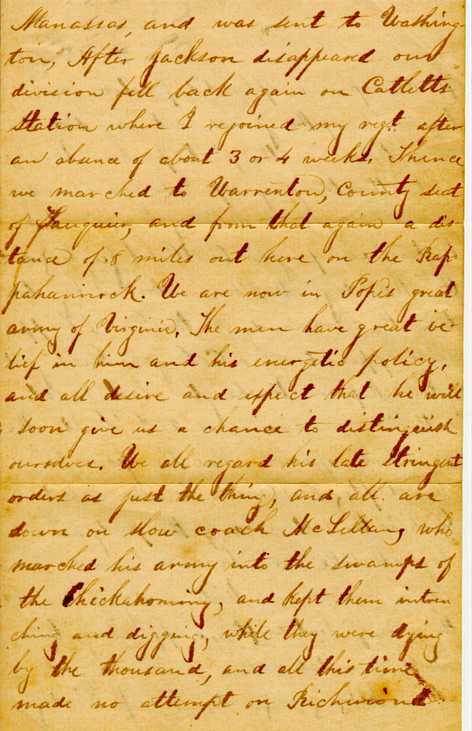 Manassas, and was sent to Washing-
ton, After Jackson disappeared our
division fell back again on Catletts
Station where I rejoined my regt. after
an absence of about 3 or 4 weeks. Thence
we marched to Warrenton, County seat
of Fauquier, and from that again a dis-
tance of 8 miles out here on the Rap-
pahannock. We are now in Popes great
army of Virginia. The men have great be-
lief in him and his energetic policy,
and all desire and expect that he will
soon give us a chance to distinguish
ourselves. We all regard his late stringent
orders as just the thing, and all are
down on slow coach McLellan, who
marched his army into the swamps of
the Chickahominy, and kept them intren-
ching and digging, while they were dying
by the thousand, and all this time
made no attempt on Richmond.